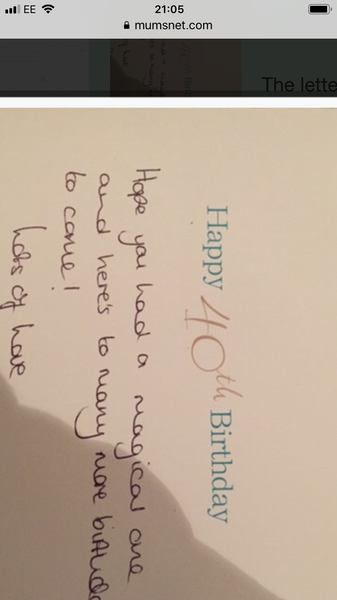 EE 21:05
mumsnet.com
The lette
Happy 40th Birthday
Hope you had a magical one
and here's to many more birthda
to come!
Lots of love